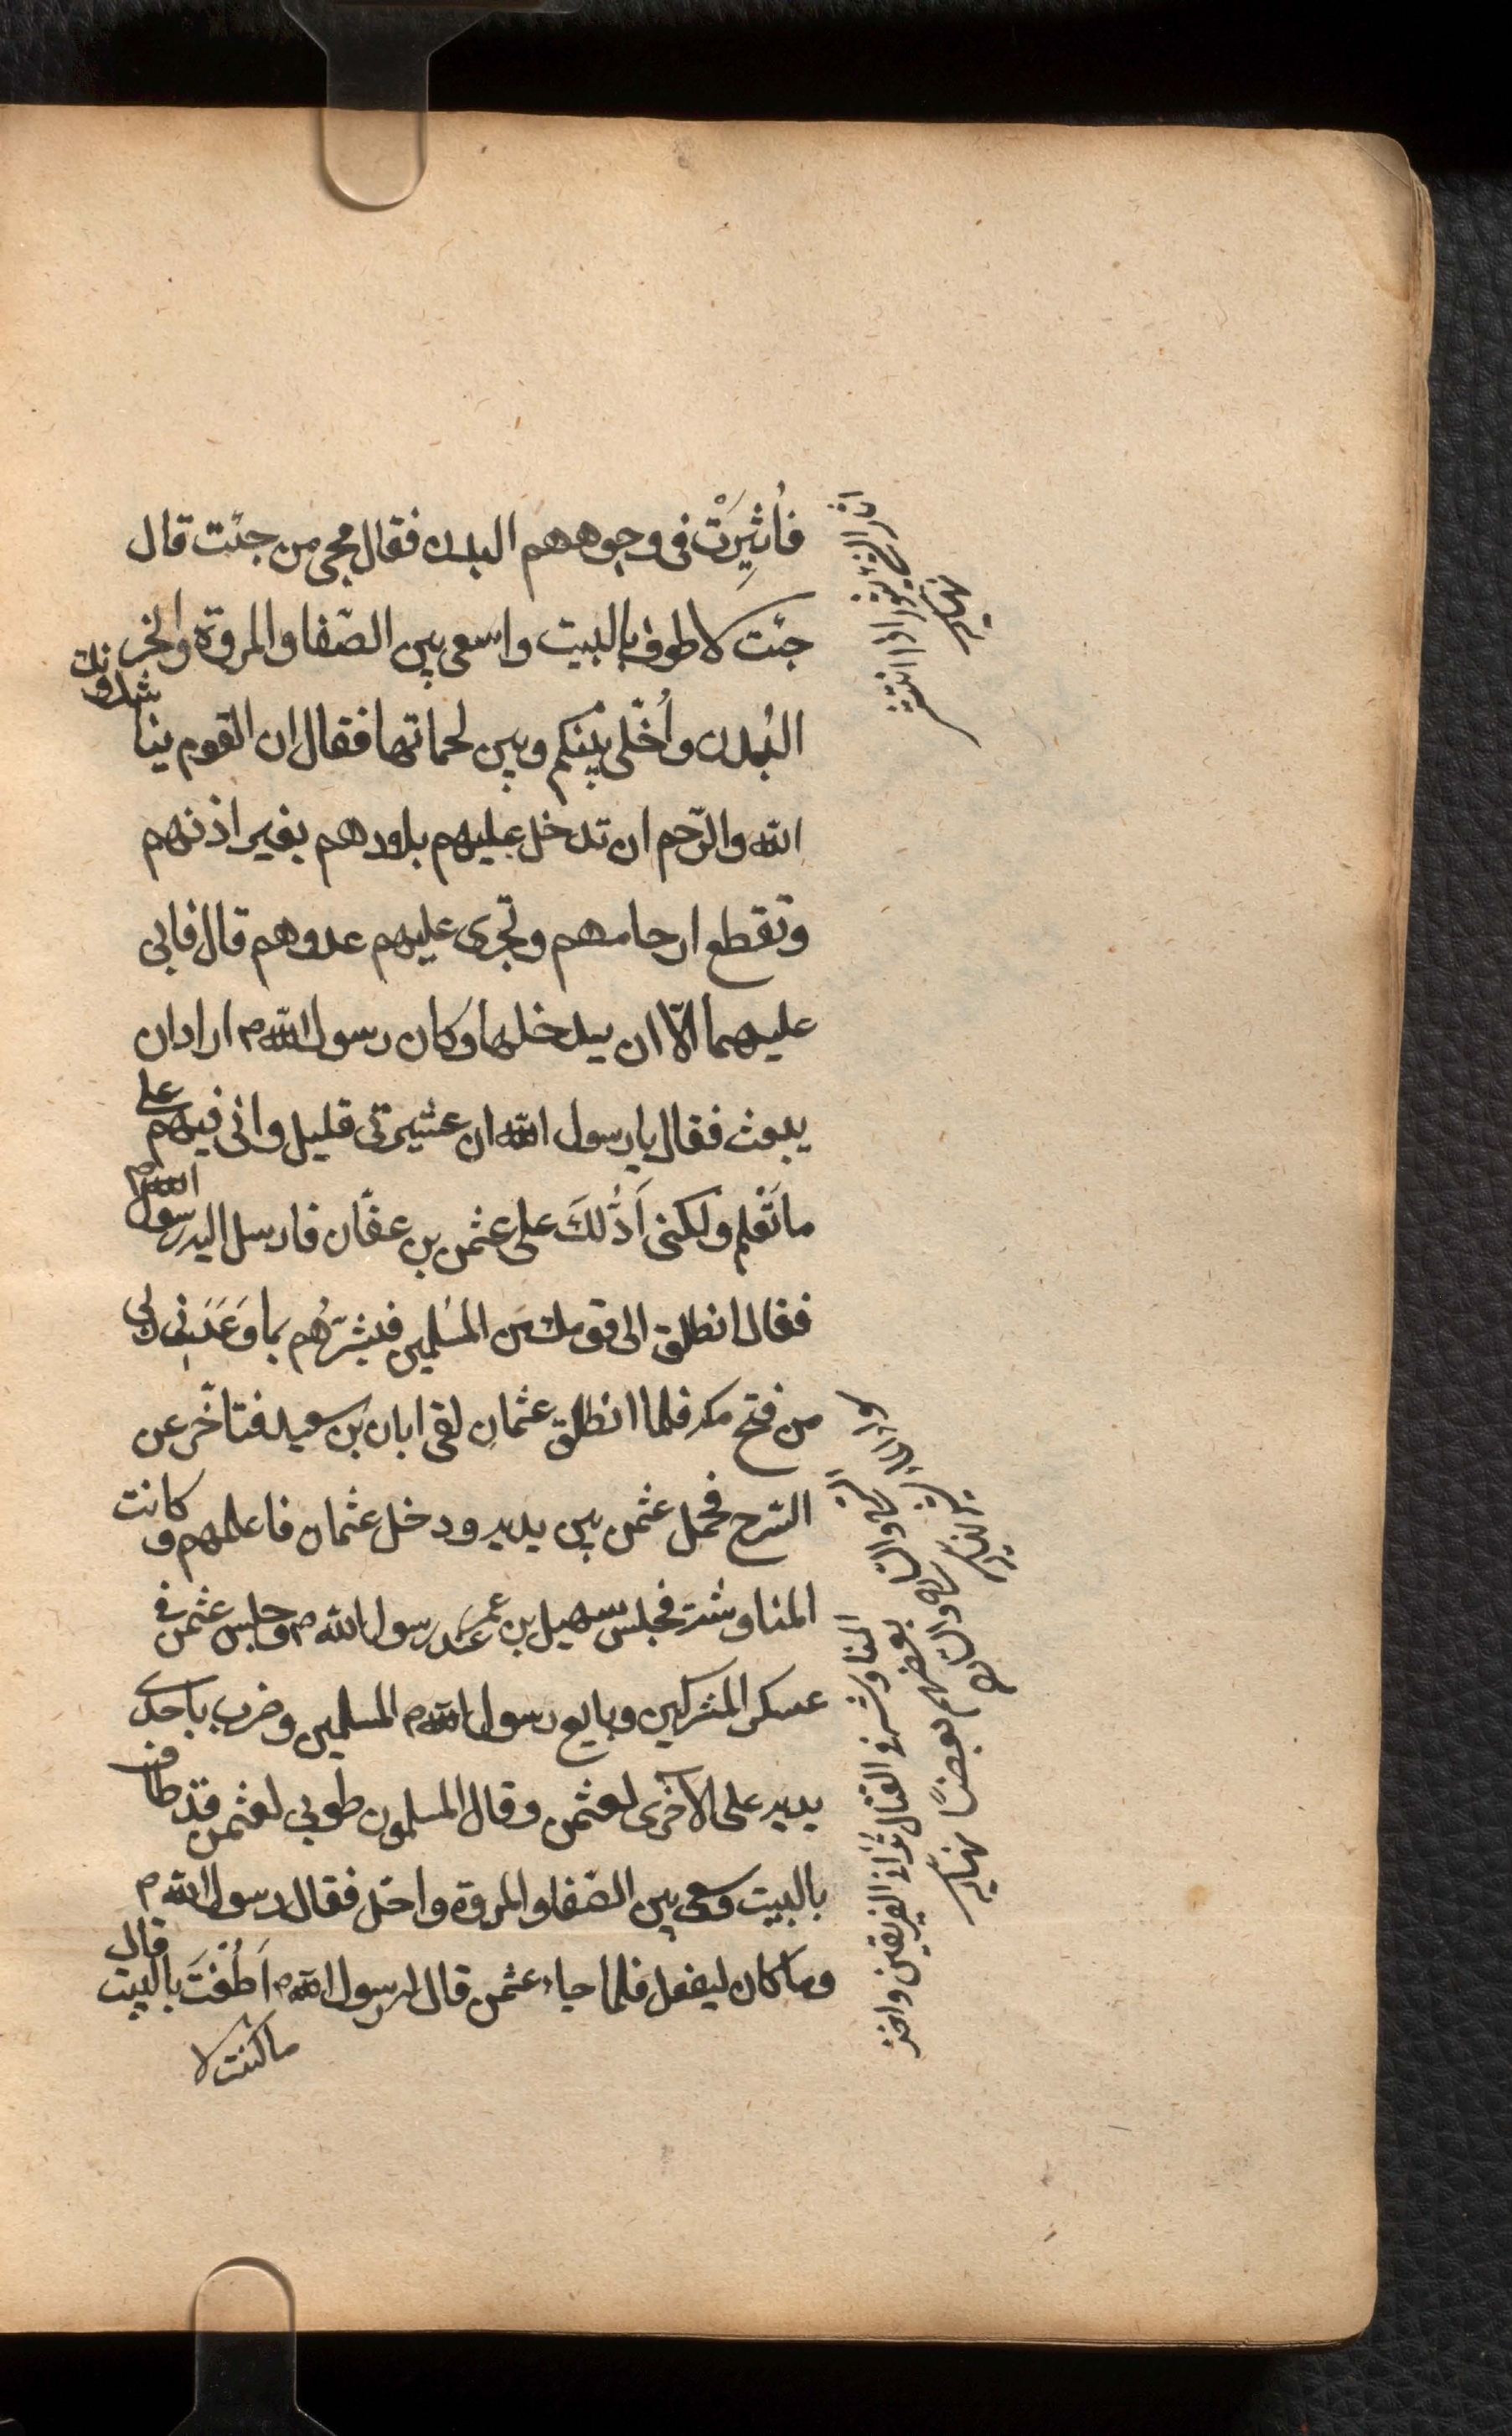 فأُثِيرَتْ فى وجوههم البدن فقال مجى من جئت قال
جئت لاطوف بالبيت واسعى بين الصّفا والمروة وانحر
البُدن وأُخَلّى بَيْنكم وبين لحمانها فقال ان القوم يناشدونك
الله والرّحم ان تدخل عليهم بلادهم بغير اذنهم
وتقطع ارحامهم وتجرى عليهم عدوهم قال فابى
عليهما الّا ان يدخلها وكان رسول اللهم اراد ان
يبعث فقال يا رسول الله ان عشيرتى قليل وانى فيهم على
ما تَعْلم ولكنى اَدُّلكَ على عثمن بن عفّان فارسل اليه رسول اللهم
فقال انطلق الى قومك من المسلمين فبَشّرهُم بما وَعَدَنى ربى
من فتح مكه فلما انطلق عثمان لقى ابان بن سعيد فتاخّر عن
السّرح فحمل عثمن بين يديه ودخل عثمان فاعلمهم وكانت
المناوشة فجلس سهيل بن عمر عند رسول اللهم وجلس عثمن فى
عسكر المشركين وبايع رسول اللهم المسلمين وضرب باحدى
يديه على الاخرى لعثمن وقال المسلمون طوبى لعثمن قد طاف
بالبيت وسعى بين الصّفا والمروة واحل فقال رسول اللهم
وما كان ليفعل فلما جاء عثمن قال له رسول اللهم اَطُفْتَ بالبيت قال
ما كنت لا
اذا انتشر
نهايه
المناوشة فى القتال تدانى الفريقين واخذ
بعضهم بعضًا نهايه